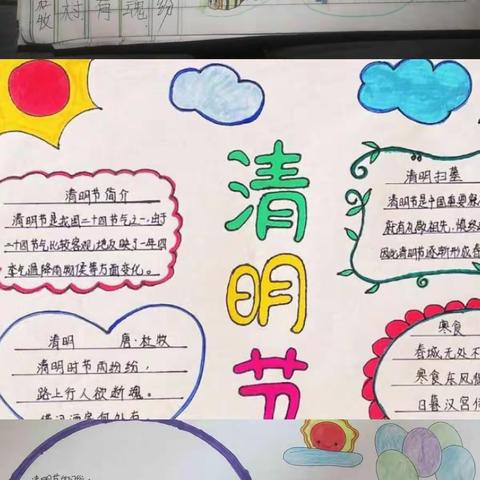 杜牧
村
有
魂
纷
清明节
清明节简介
清明节是我国二十四节气之一。由于
二十四节气比较客观地反映了一年四
季气温降雨物候等方面变化。
清明扫墓
清明节是中国重要
清明 唐·杜牧
清明时节雨纷纷，
路上行人欲断魂。
借问酒家何处有
寒食
春城无处不
寒食东风
日暮汉宫传